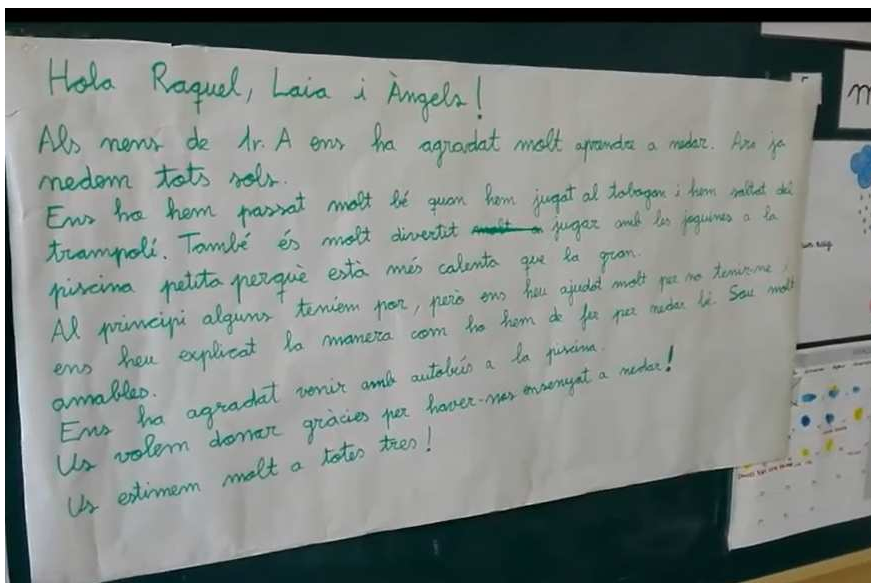 Hola Raquel, Laia i Àngels!
Als nens de 1r. A ens ha agradat molt aprendre a nedar. Ara ja
nedem tots sols.
Ens ho hem passat molt bé quan hem jugat al tobogan i hem saltat del
trampolí. També és molt divertit jugar amb les joguines a la
piscina petita perquè està més calenta que la gran.
Al principi alguns teníem por, però ens heu ajudat molt per no tenir-ne i
ens heu explicat la manera com ho hem de fer per nedar bé. Sou molt
amables.
Ens ha agradat venir amb autobús a la piscina.
Us volem donar gràcies per haver-nos ensenyat a nedar!
Us estimem molt a totes tres!
m
un raig